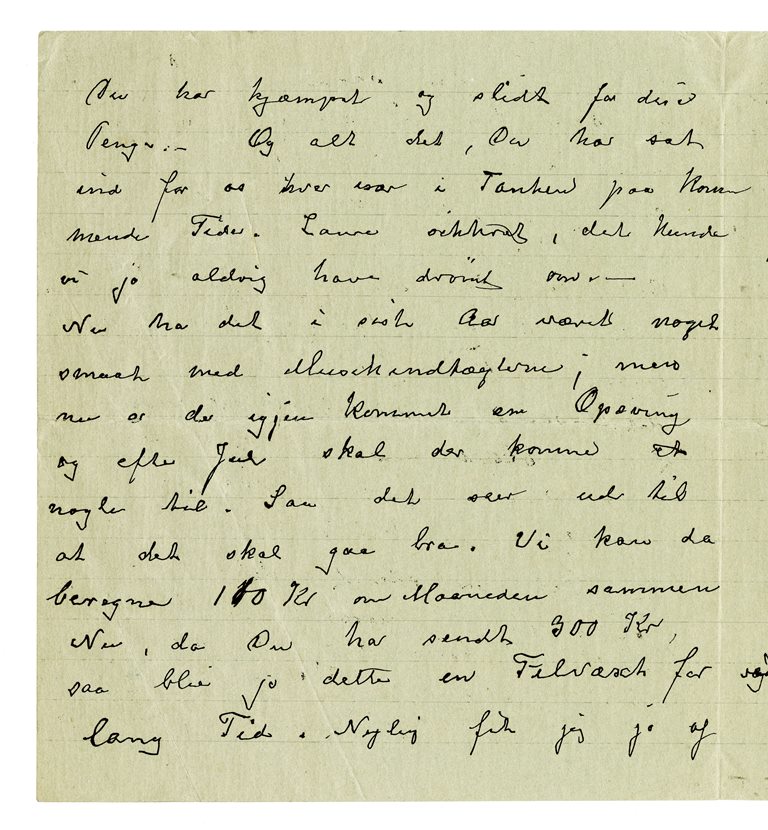 Du har kjæmpet og slidt for disse
Penge.– Og alt det, Du har sat
ind for os hver især i Tanken paa Kom
mende Tider. Laura det kunde
vi jo aldrig have drømt om.–
Nu ha det i siste Aar været noget
smaat med Musikindtægterne; men
nu er der igjen kommet en Opsving
og efter Jul skal der komme et
nogle til. Saa det seer ud til
at det skal gaa bra. Vi kan da
beregne 110 Kr om Maaneden sammen
Nu, da Du har sendt 300 Kr,
saa blir jo dette en Tilvæxt for
lang Tid. Nylig fik jeg jo af